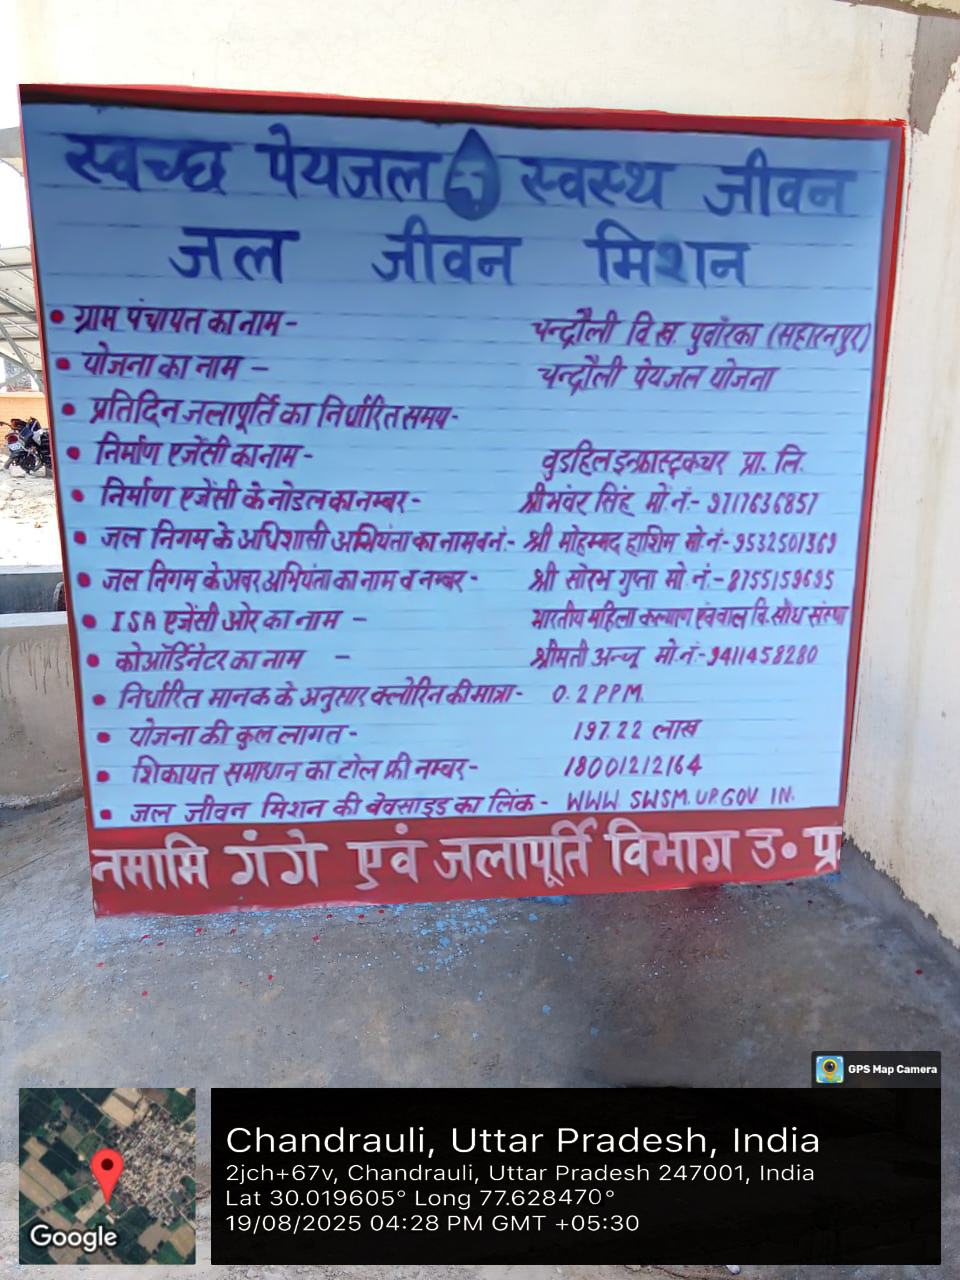 स्वच्छ पेयजल स्वस्थ जीवन
जल जीवन मिशन
• ग्राम पंचायत का नाम - चन्द्रौली वि ख. पुवांरका (सहारनपुर)
• योजना का नाम - चन्द्रौली पेयजल योजना
• प्रतिदिन जलापूर्ति का निर्धारित समय-
• निर्माण एजेंसी का नाम - वुडहिल इन्फ्रास्ट्रकचर प्रा. लि.
• निर्माण एजेंसी के नोडल का नम्बर - श्री भंवर सिंह मो.नं- 9717636857
• जल निगम के अधिशासी अभियंता का नाम व नं.- श्री मोहम्मद हाशिम मो.नं.- 9532501369
• जल निगम के अवर अभियंता का नाम व नम्बर - श्री सोरभ गुप्ता मो नं.- 8755159695
• ISA एजेंसी ओर का नाम - भारतीय महिला कल्याण एवं बाल वि. संस्था
• कोऑर्डिनेटर का नाम - श्रीमती अन्जू मो.नं.- 9411458280
• निर्धारित मानक के अनुसार क्लोरिन की मात्रा- 0.2 PPM
• योजना की कुल लागत - 197.22 लाख
• शिकायत समाधान का टोल फ्री नम्बर- 18001212164
• जल जीवन मिशन की बेवसाइड का लिंक - WWW. SWSM.UP.GOV IN.
नमामि गंगे एवं जलापूर्ति विभाग उ॰ प्र
GPS Map Camera
Chandrauli, Uttar Pradesh, India
2jch+67v, Chandrauli, Uttar Pradesh 247001, India
Lat 30.019605° Long 77.628470°
19/08/2025 04:28 PM GMT +05:30
Google